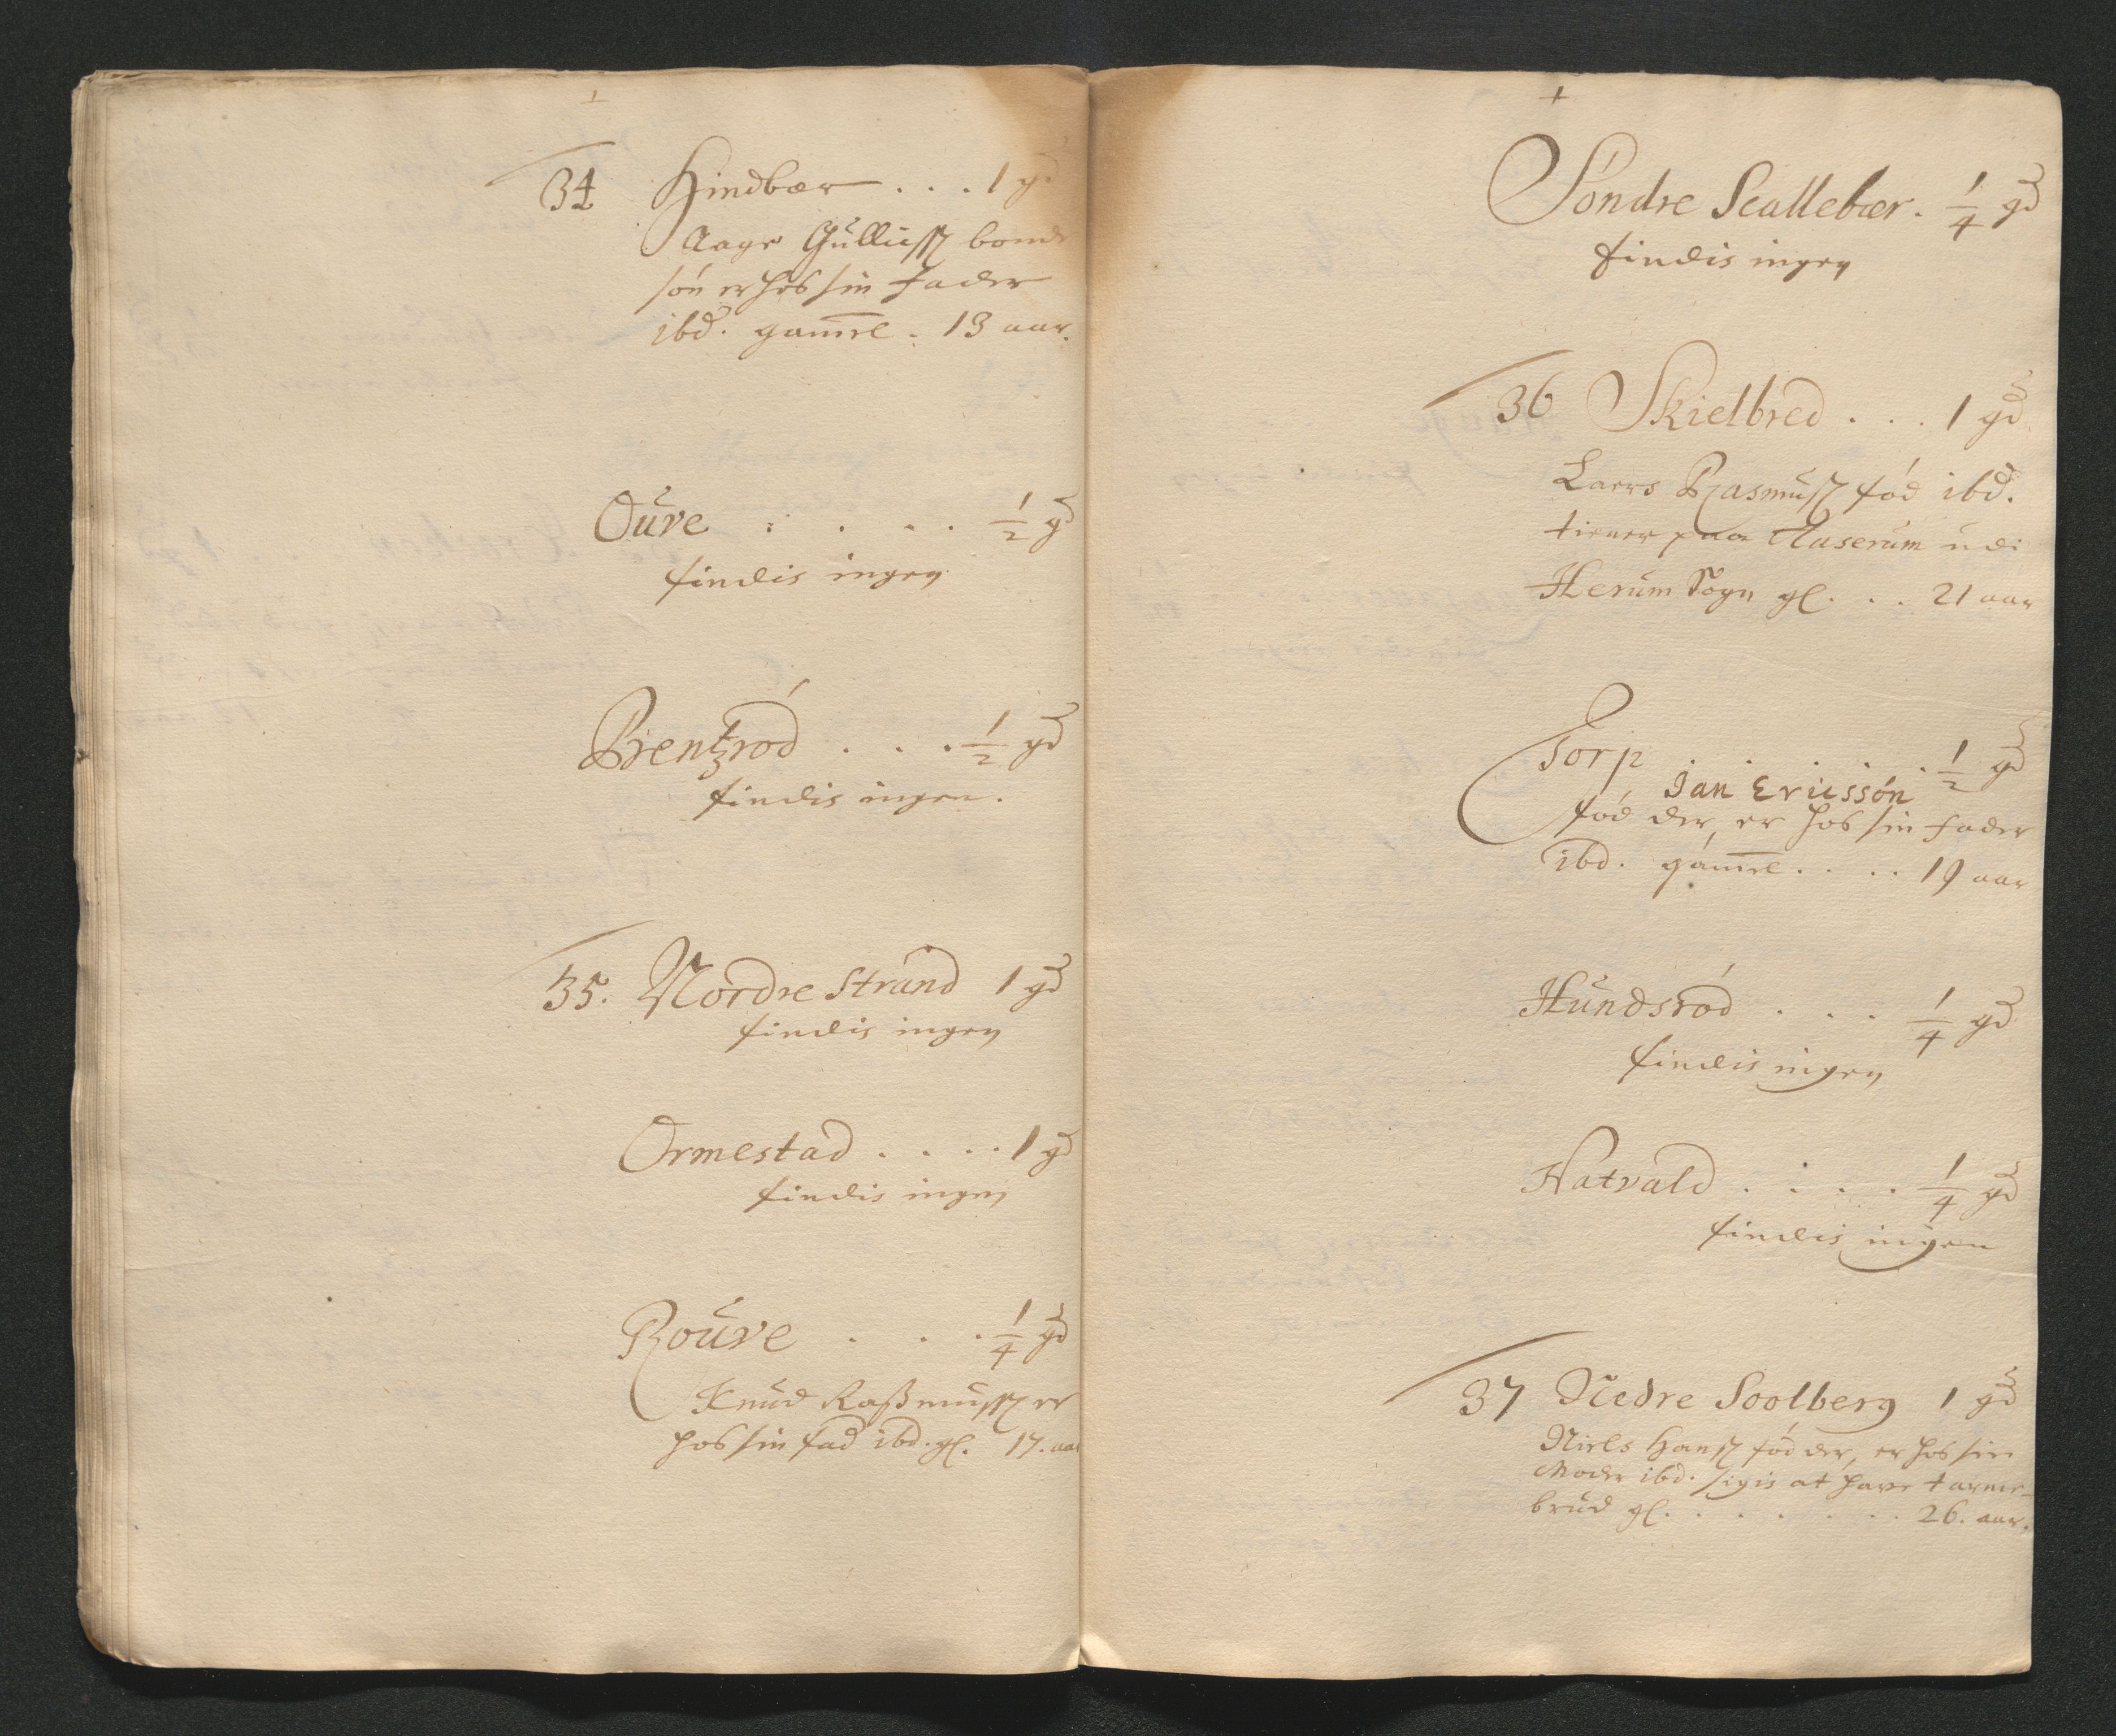 34 Hindbær . . . 1 gd
Aage Gullicss bonde
søn er hos sin Fader
ibd. gamel . 13 aar.
Oure . . . . ½ gd
findis ingen
Brentzrød . . . ½ gd
findis ingen.
35. Nordre Strand 1 gd
findis ingen
Ormestad . . . . 1 gd
findis ingen
Roure . . . ¼ gd
Knud Rasmuss er
hos sin fad ibd. gl. 17. aar
Søndre Scallebær . ¼ gd
findis ingen
36 Skielbred . . . 1 gd
Laers Rasmuss fød ibd.
tiener paa Aaserum udi
Herum Sogn gl. . . 21 aar
Torp . . . . ½ gd
Jan Ericssøn
fød der, er hos sin fader
ibd. gamel . . . . 19 aar
Hundsrød . . . ¼ gd
findis ingen
Hatvald . . . . ¼ gd
findis ingen
37 Nedre Soolberg 1 gd
Niels Hanss fød der, er hos sin
Moder ibd. sigis at have tarme-
brud gl. . . . . . . . 26. aar.